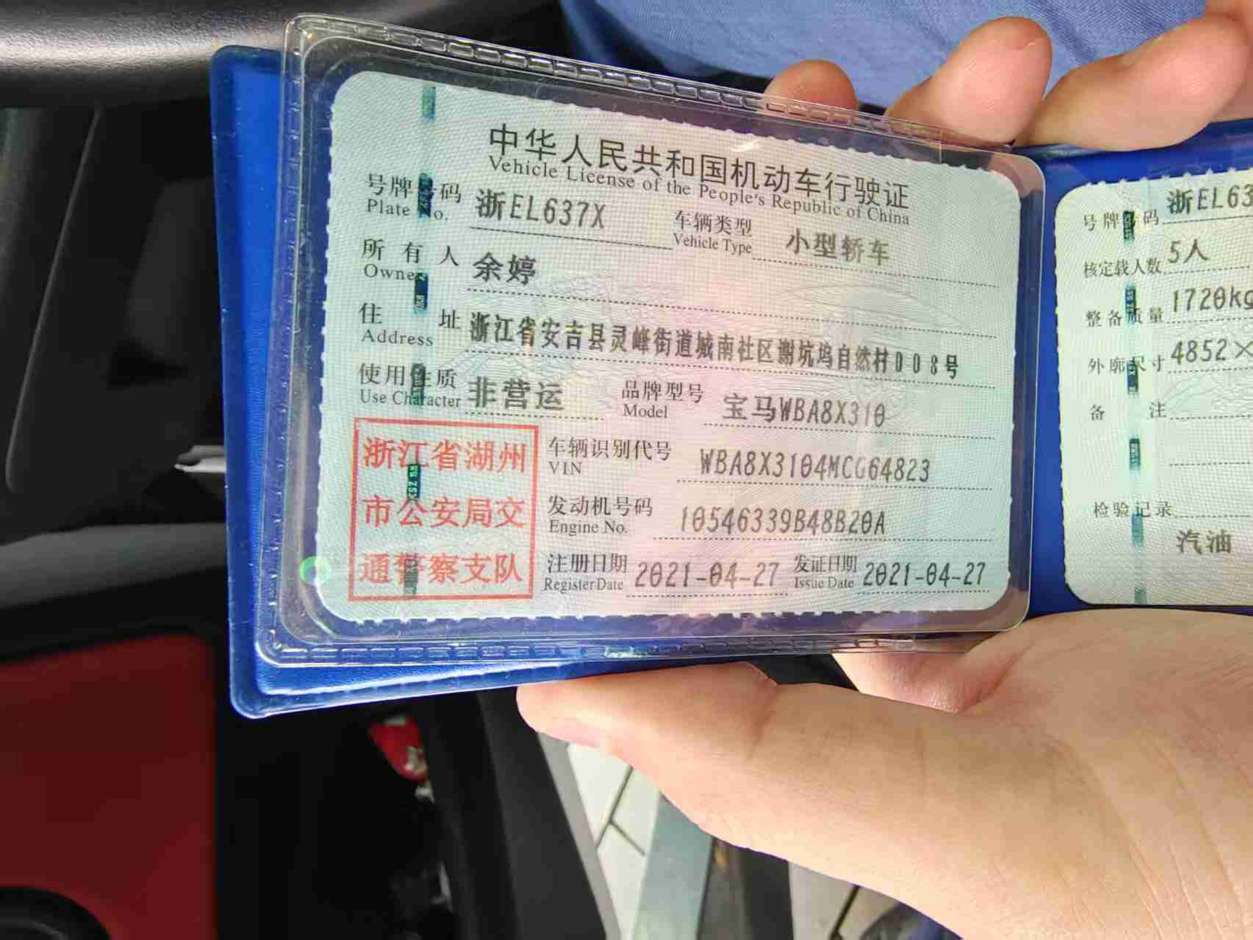 中华人民共和国机动车行驶证
Vehicle License of the People's Republic of China
号牌号码 浙EL637X 车辆类型 小型轿车
Plate No. Vehicle Type
所有人 余婷
Owner
住址 浙江省安吉县灵峰街道城南社区谢坑坞自然村D08号
Address
使用性质 非营运 品牌型号 宝马WBA8X310
Use Character Model
浙江省湖州
市公安局交
通警察支队
车辆识别代号 WBA8X3104MCG64823
VIN
发动机号码 10546339B48B20A
Engine No.
注册日期 2021-04-27 发证日期 2021-04-27
Register Date Issue Date
号牌号码 浙EL63
核定载人数 5人
整备质量 1720kg
外廓尺寸 4852×
备注
检验记录
汽油